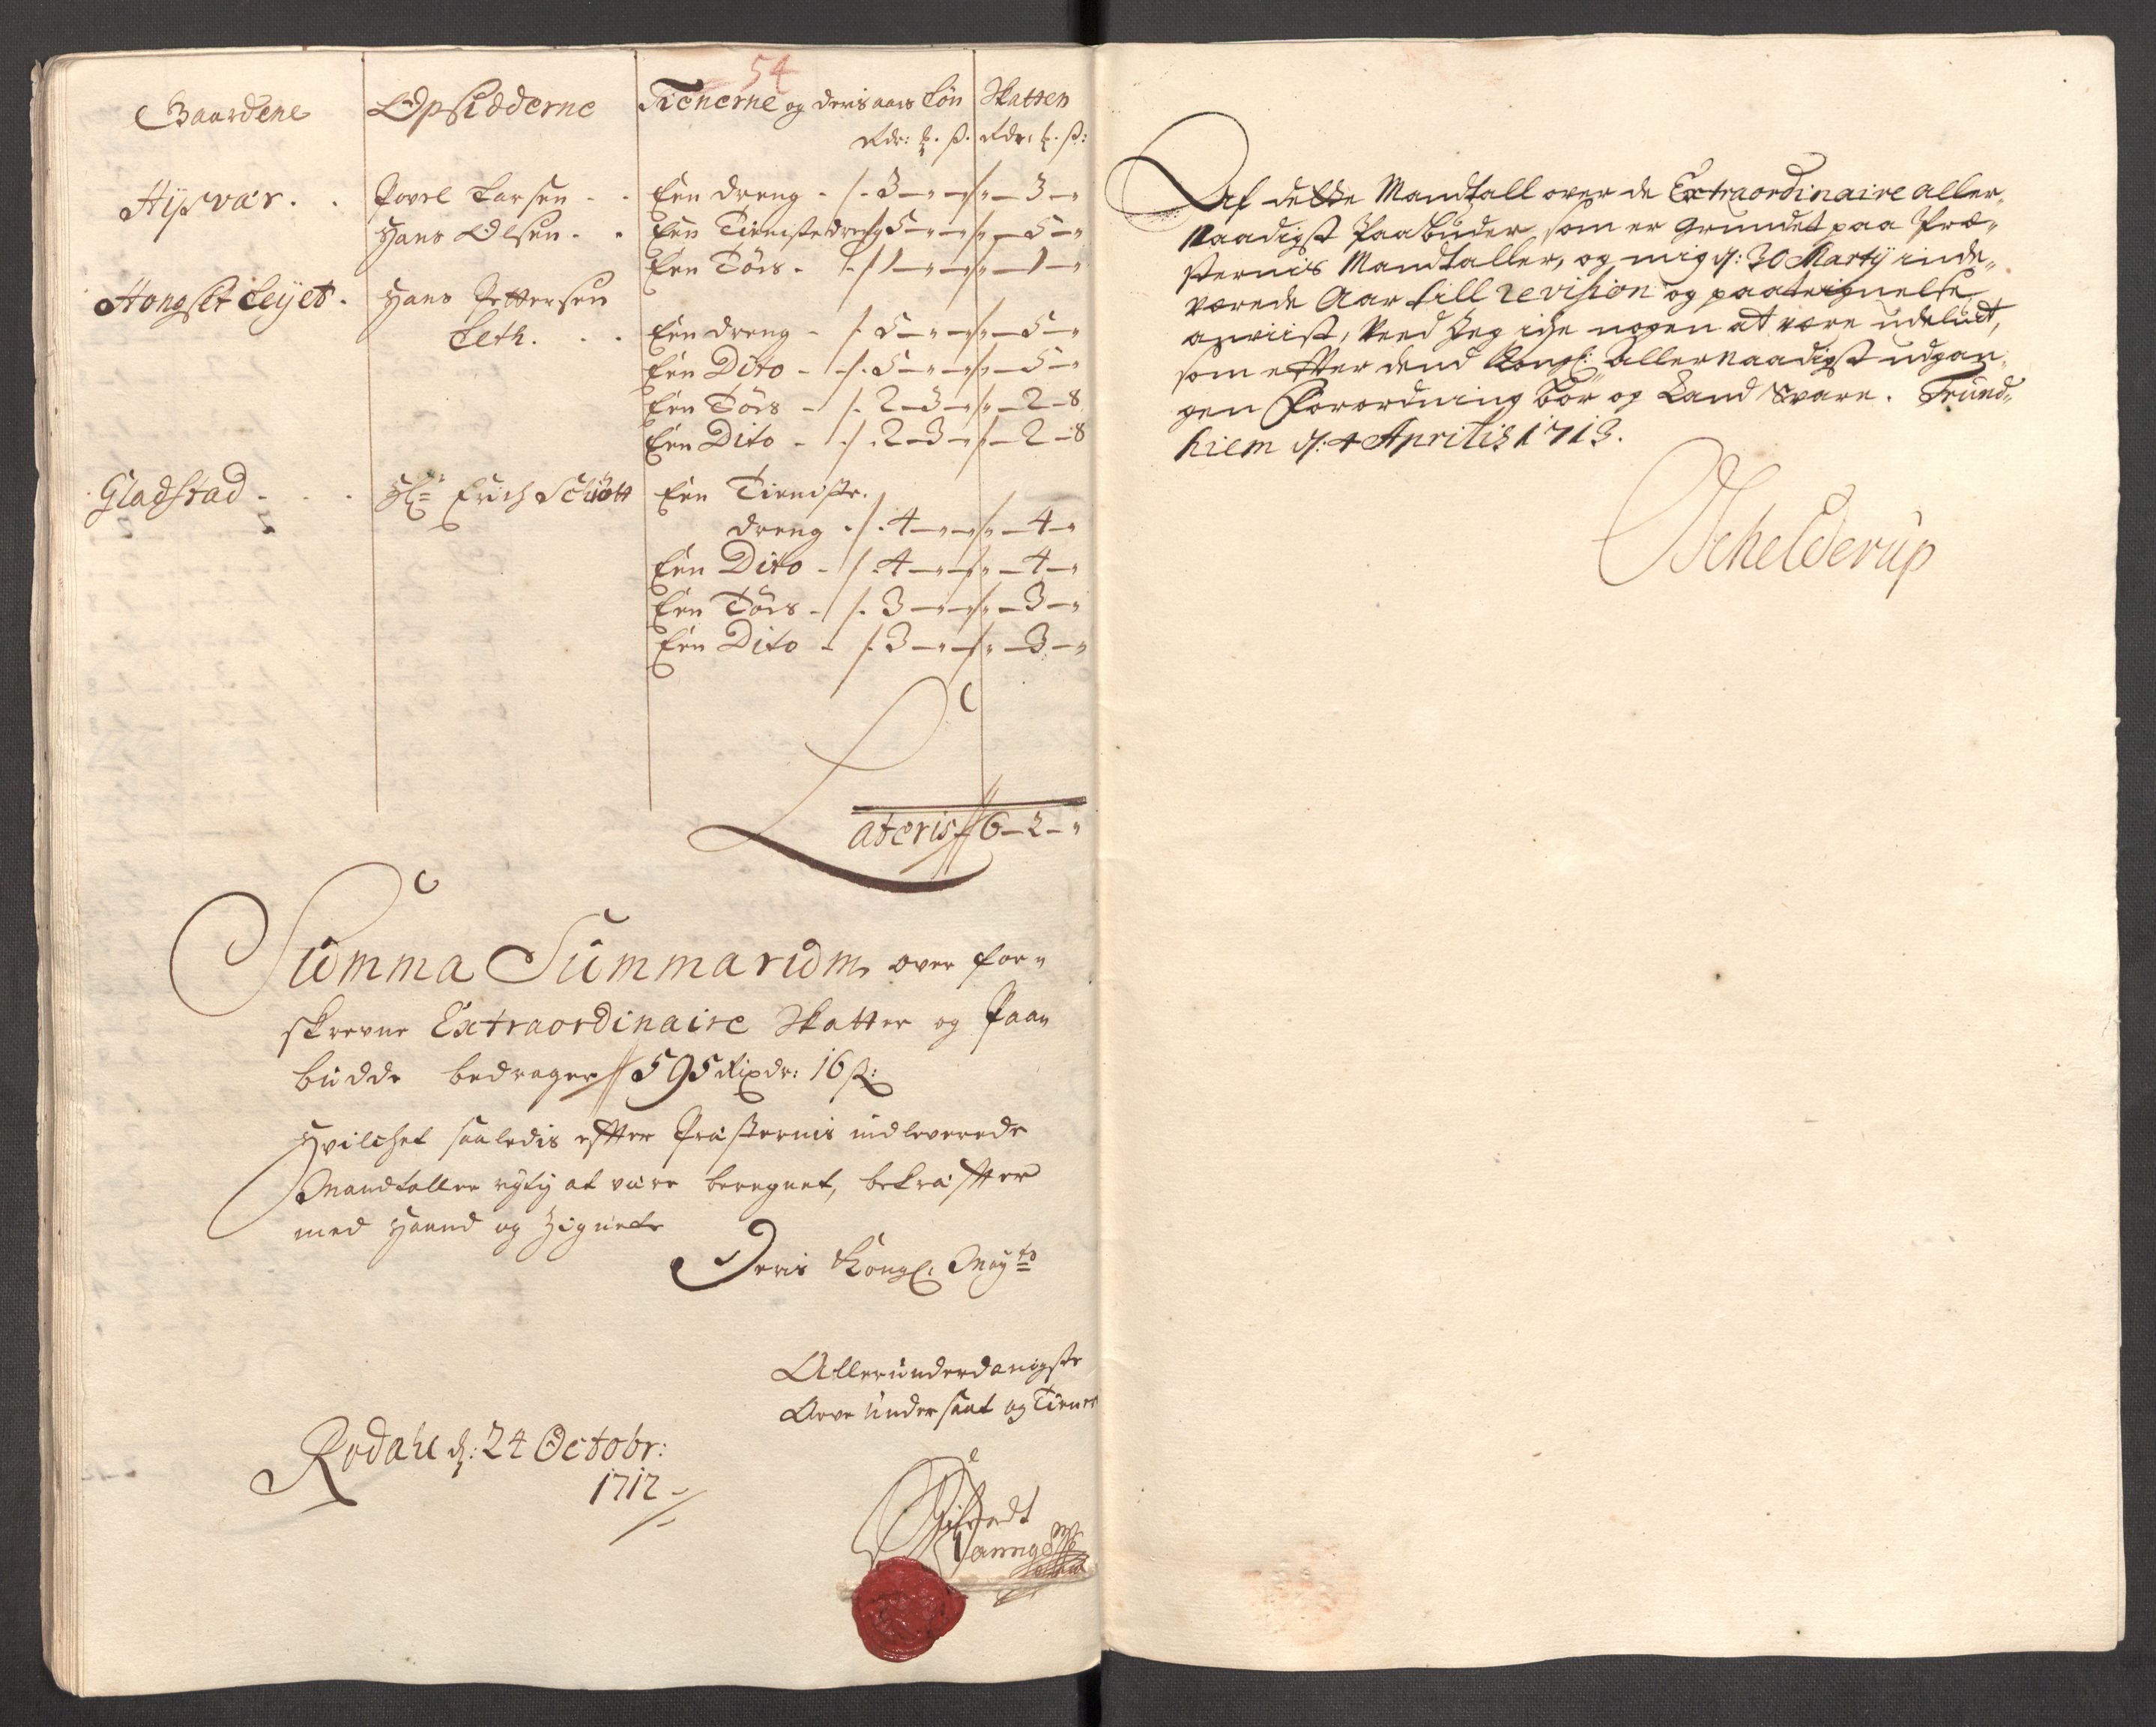 54
Gaardene Opsidderne Tienerne og deris aars Løn Skatten
Rdr: ß. Rdr: ß:
Hÿsvær. . Povel Larsen - . Een dreng - 3 - " - " - 3 - "
Hans Olsen . . Een Tienistedreng 5 - " - " - 5 - "
Een Tøs - 1 - " - " - 1 - "
Hongset Leÿet . Hans Pettersen
Leth. . . Een dreng - 5 - " - " - 5 - "
Een Dito - 5 - " - " - 5 - "
Een Tøs - 2 - 3 - " - 2 - 8
Een Dito - 2 - 3 - " - 2 - 8
Gladstad - . . Hr: Erich Schiøtt Een Tieniste.
dreng . 4 - " - " - 4 - "
Een Dito - 4 - " - " - 4 - "
Een Tøs - 3 - " - " - 3 - "
Een Dito - 3 - " - " - 3 - "
Lateris 6 - 2 - "
Summa Summarum over for-
skrevne Extraordinaire Skatter og Paa-
budde bedrager 595 Rixdr: 16 ß:
Hvilchet saaledis efter Præsternis indleverede
Mandtaller rigtig at være beregnet, bekræffter
med Haand og Zignete
Deris Kongl: Mayts
Allerunderdanigste
Arve Undersaat og Tiener
Rødahl d: 24 Octobr:
1712 -
Af dette Mandtall over de Extraordinaire aller-
Naadigst Paabuder, som er grundet paa Præ-
sternis Mandtaller, og mig d: 30 Martÿ inde-
værede Aar till revision og paateignelse
anviist, veed Jeg icke nogen at være udeluct,
som effter dend Kongl: allernaadigst udgan-
gen Forordning bør og kand Svare. Trund-
hiem d: 4 Aprilis 1713.
Schelderup